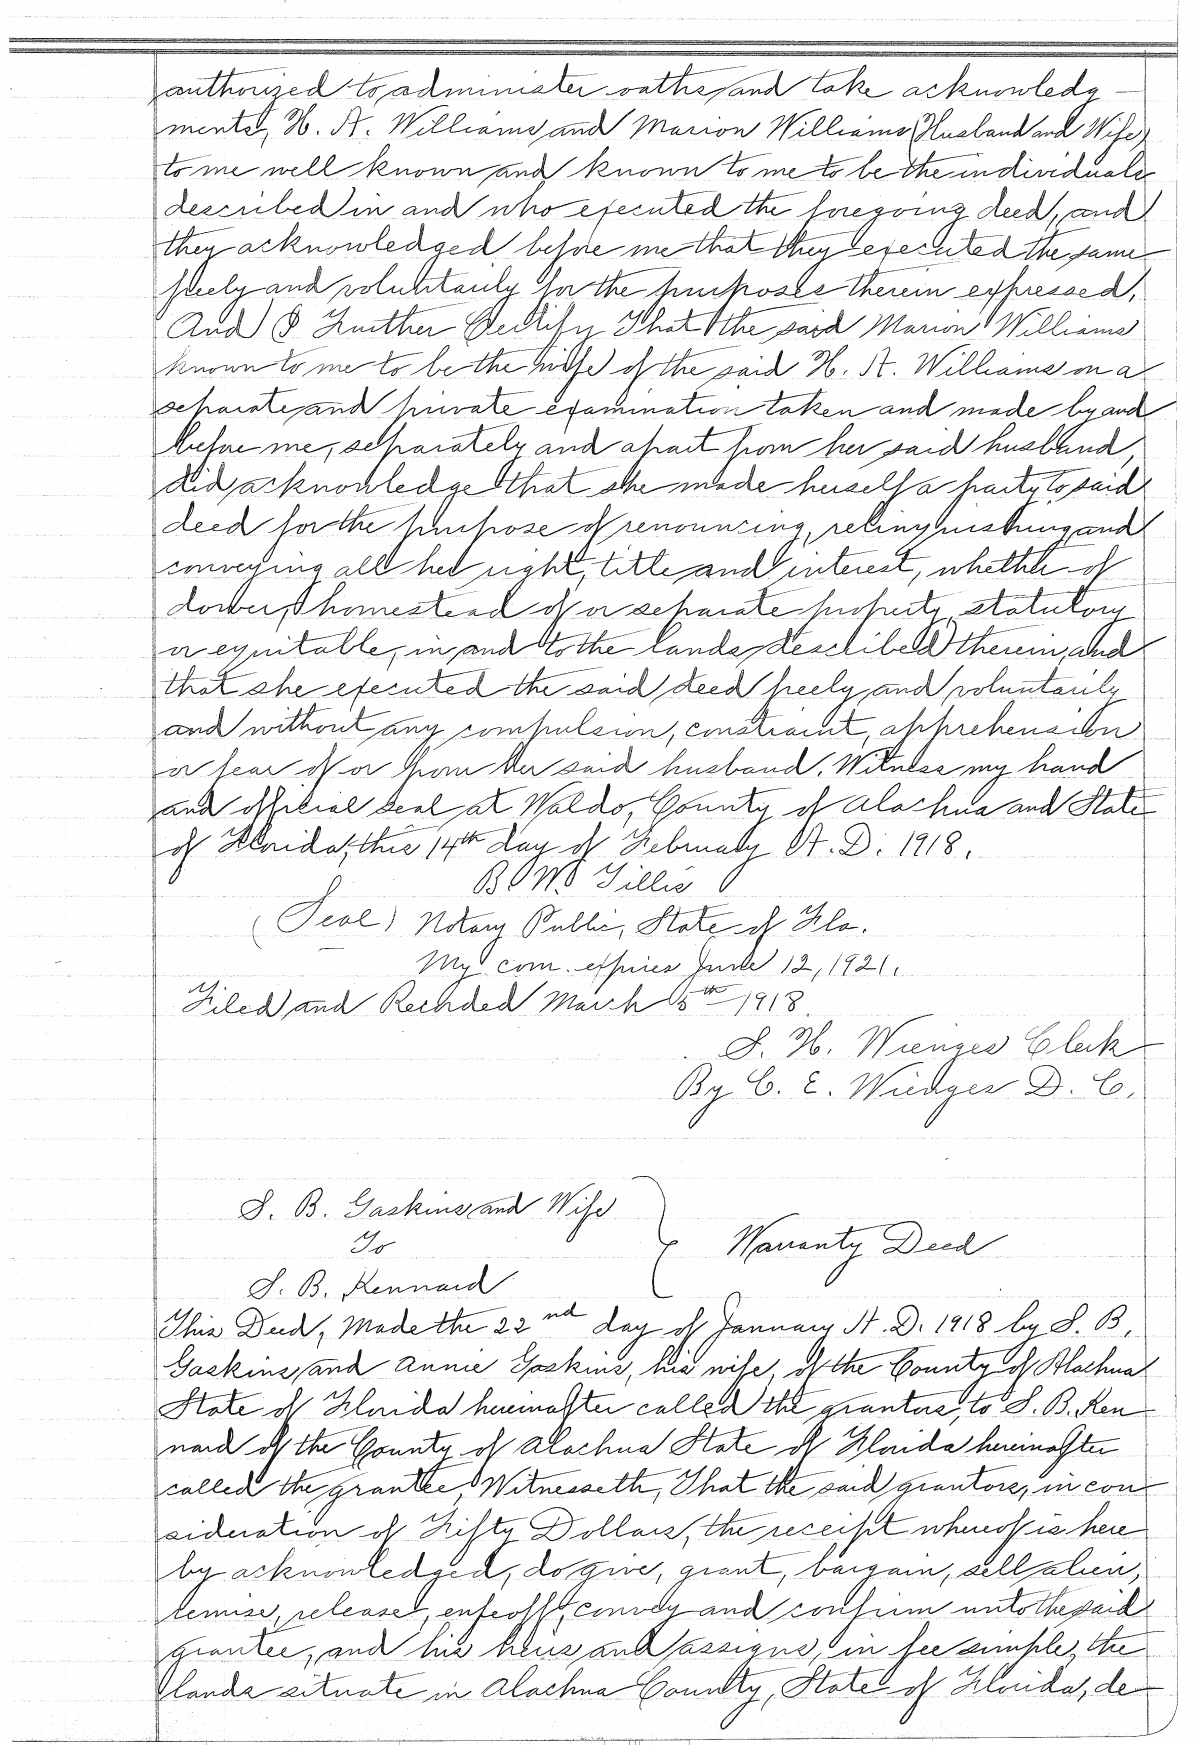 authorized to administer oaths and take acknowledg-
ments, H. A. Williams and Marion Williams (Husband and Wife)
to me well known and known to me to be the individuals
described in and who executed the foregoing deed, and
they acknowledged before me that they executed the same
freely and voluntarily for the purposes therein expressed,
And I Further Certify That the said Marion Williams
known to me to be the wife of the said H. A. Williams on a
separate and private examination taken and made by and
before me, separately and apart from her said husband,
did acknowledge that she made herself a party to said
deed for the purpose of renouncing, relinquishing and
conveying all her right, title and interest, whether of
dower, homestead of or separate property, statutory
or equitable, in and to the lands described therein, and
that she executed the said deed freely and voluntarily
and without any compulsion, constraint, apprehension
or fear of or from her said husband. Witness my hand
and official seal at Waldo, County of Alachua and State
of Florida, this 14th day of February A. D. 1918.
B. W. Tillis
(Seal) Notary Public, State of Fla.
My com. expires June 12, 1921.
Filed and Recorded March 5th 1918.
S. H. Wienges Clerk
By C. E. Wienges D. C.
S. B. Gaskins and Wife
To
Warranty Deed
S. B. Kennard
This Deed, Made the 22nd day of January A. D. 1918 by S. B.
Gaskins and Annie Gaskins, his wife, of the County of Alachua
State of Florida hereinafter called the grantors, to S. B. Ken
nard of the County of Alachua State of Florida hereinafter
called the grantee, Witnesseth, That the said grantors, in con
sideration of Fifty Dollars, the receipt whereof is here
by acknowledged, do give, grant, bargain, sell, alien,
remise, release, enfeoff, convey and confirm unto the said
grantee, and his heirs and assigns, in fee simple, the
lands situate in Alachua County, State of Florida, de-